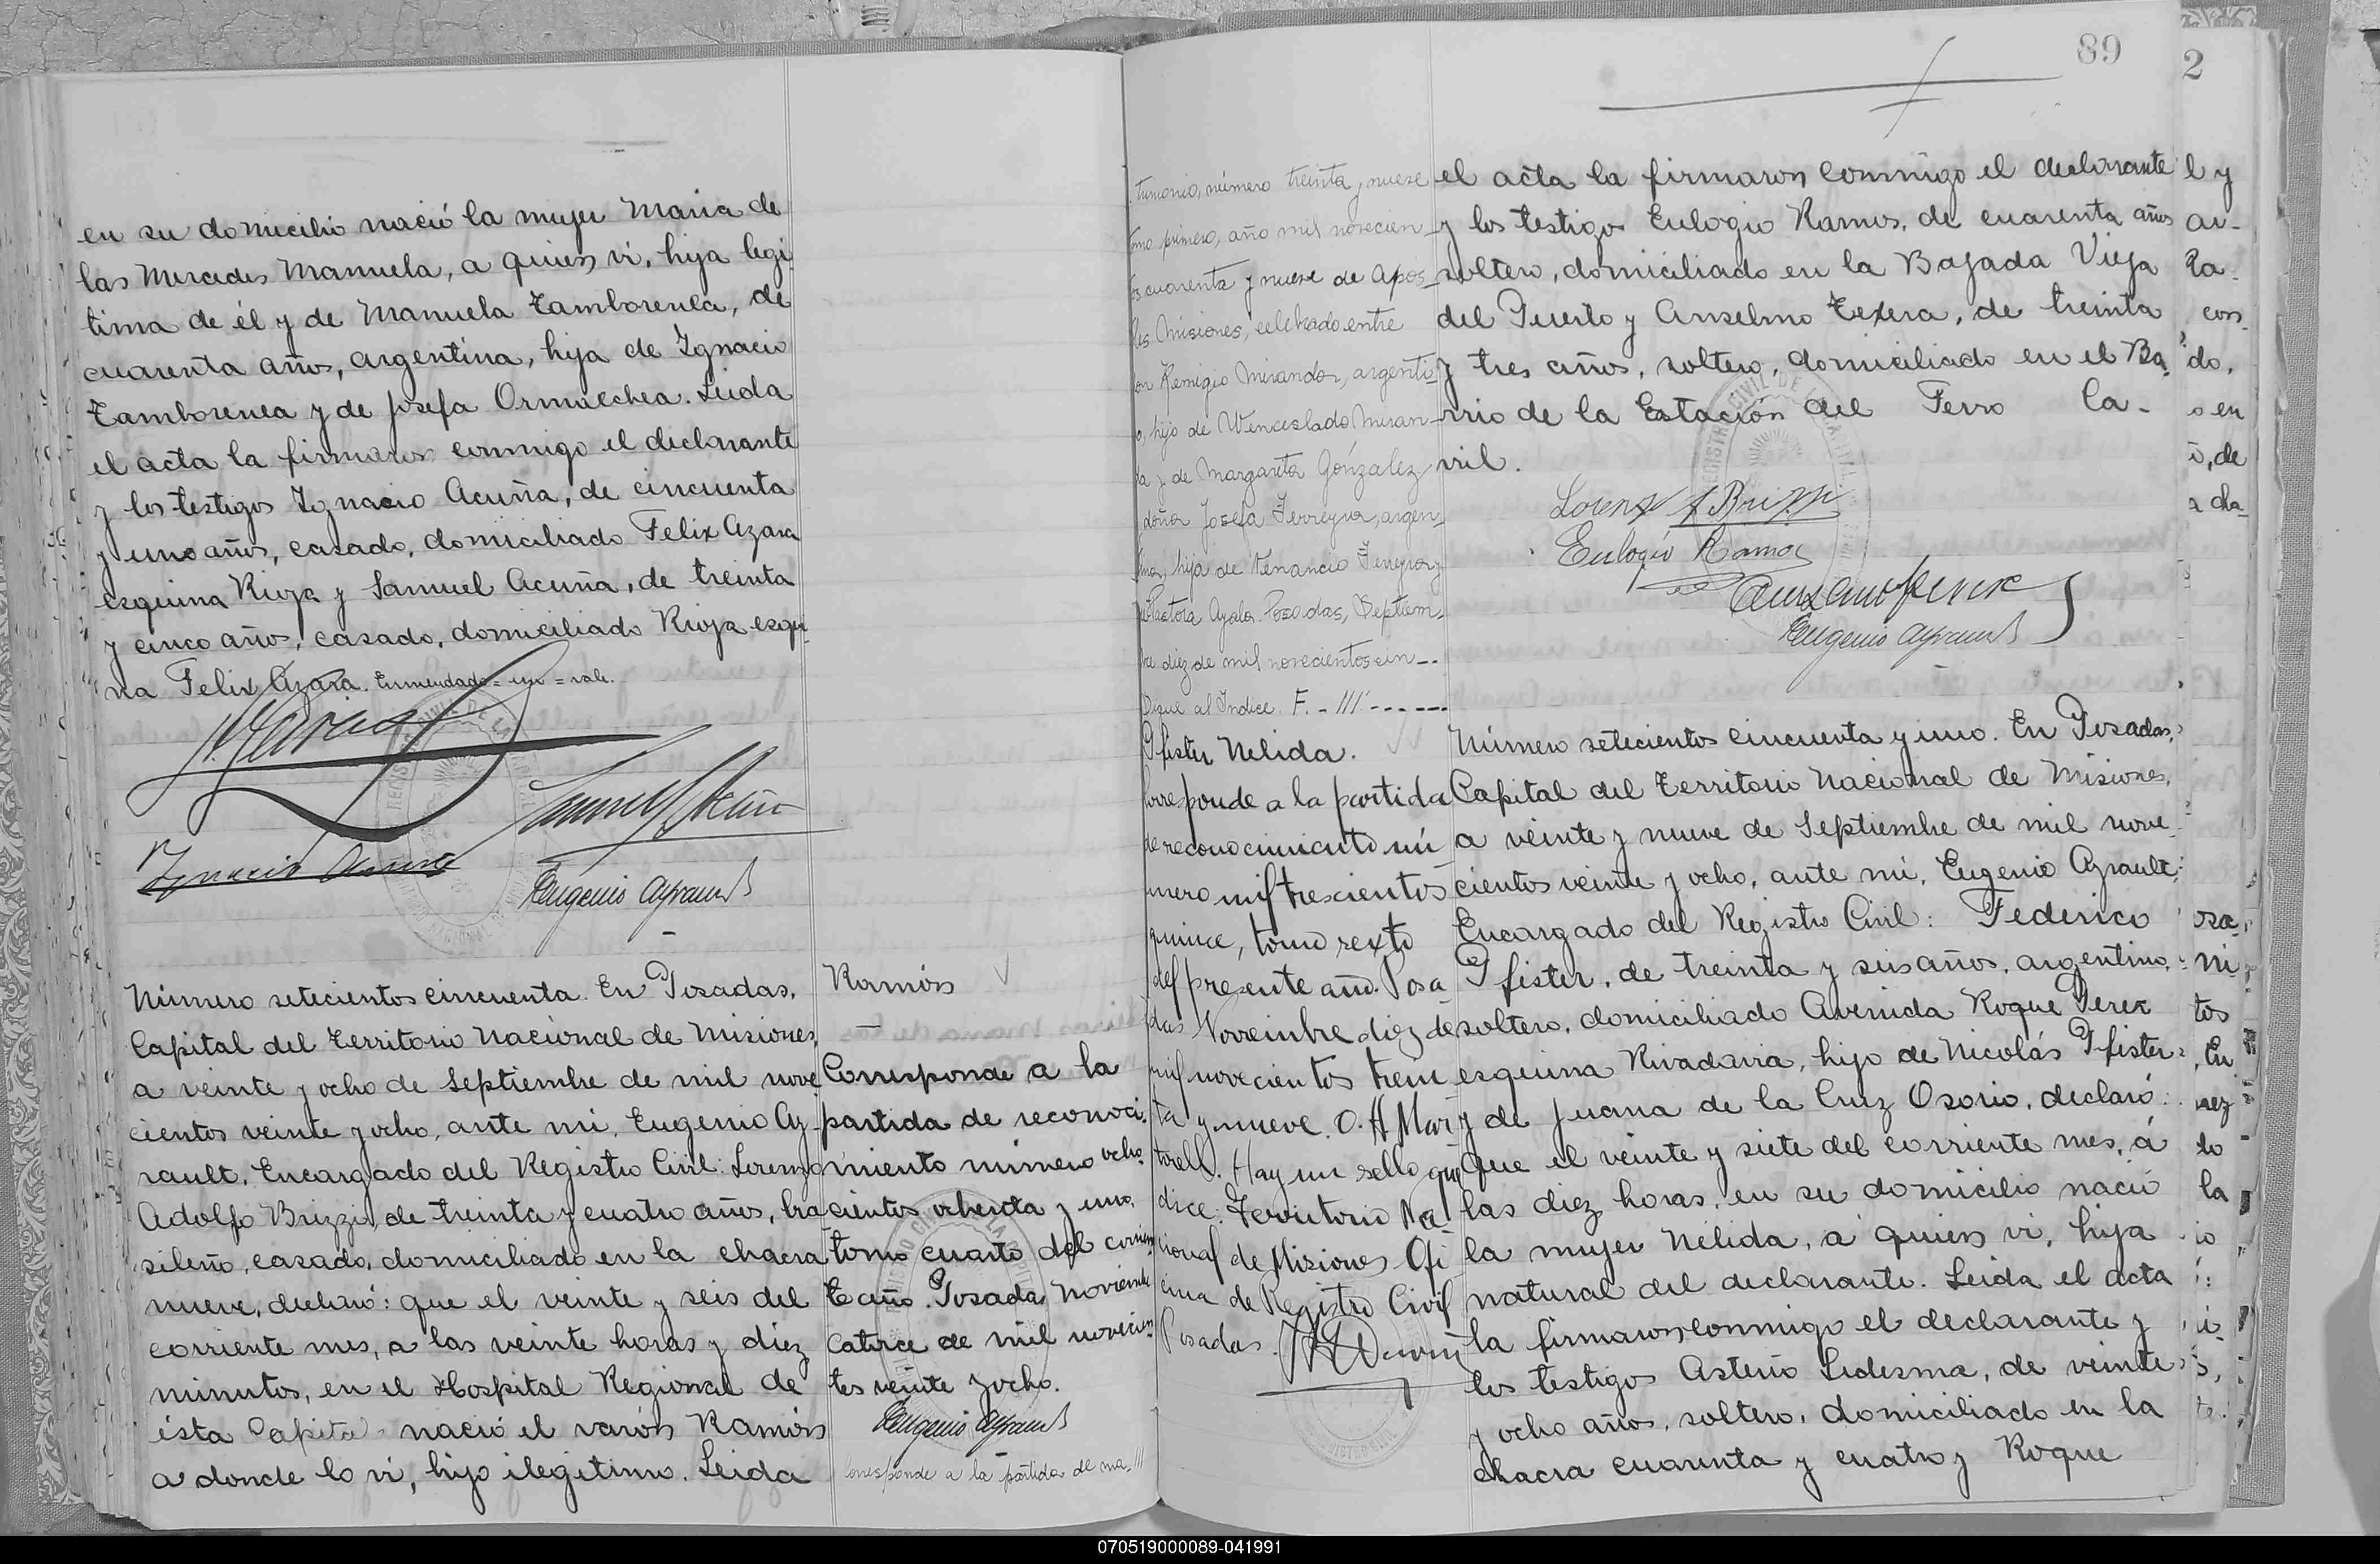 en su domicilio nació la mujer Maria de
las Mercedes Manuela, a quien vi, hija legi-
tima de él y de Manuela Tamborenea, de
cuarenta años, argentina, hija de Ignacio
Tamborenea y de Josefa Ormaechea. Leida
el acta la firmaron conmigo el declarante
y los testigos Ignacio Acuña, de cincuenta
y uno años, casado, domiciliado Felix Azara
esquina Rioja y Samuel Acuña, de treinta
y cinco años, casado, domiciliado Rioja esqui-
na Felix Azara. Enmendado = un = vale.
Ignacio Acuña
Eugenio Ayrault
Número setecientos cincuenta. En Posadas,
Capital del Territorio Nacional de Misiones,
a veinte y ocho de Septiembre de mil nove
cientos veinte y ocho, ante mi, Eugenio Ay-
rault, Encargado del Registro Civil: Lorenzo
Adolfo Brizzi, de treinta y cuatro años, bra
sileño, casado, domiciliado en la chacra
nueve, declaró: que el veinte y seis del
corriente mes, a las veinte horas y diez
minutos, en el Hospital Regional de
ésta Capital nació el varón Ramón
a donde lo vi, hijo ilegitimo. Leida
Ramón
Corresponde a la
partida de reconoci-
miento número ocho
cientos ochenta y uno,
tomo cuarto del corrien
te año. Posadas Noviembre
catorce de mil novecien
tos veinte y ocho.
Eugenio Ayrault
Corresponde a la partida de ma-///
89
timonio, número treinta y nueve
tomo primero, año mil novecien-
tos cuarenta y nueve de Apos-
les Misiones, celebrado entre
don Remigio Miranda, argenti-
no, hijo de Wenceslado Miran-
da y de Margarita González
doña Josefa Ferreyra, argen-
tina, hija de Venancio Ferreyra y
Pastora Ayala. Posadas, Septiem-
bre diez de mil novecientos cin--
Sigue al Indice. F. - 111 ------
el acta la firmaron conmigo el declarante
y los testigos Eulogio Ramos, de cuarenta años
soltero, domiciliado en la Bajada Vieja
del Puerto y Anselmo Texera, de treinta
y tres años, soltero, domiciliado en el Ba-
rrio de la Estación del Ferro Ca-
rril.
Lorenzo A Brizzi
Eulogio Ramos
Eugenio Ayrault
Pfister Nelida.
Corresponde a la partida
de reconocimiento nú
mero mil trescientos
quince, tomo sexto
del presente año. Posa
das Noviembre diez de
mil novecientos trein
ta y nueve. O. A Mar
torell. Hay un sello que
dice: Territorio Na
cional de Misiones Ofi
cina de Registro Civil
Posadas.
Número setecientos cincuenta y uno. En Posadas,
Capital del Territorio Nacional de Misiones,
a veinte y nueve de Septiembre de mil nove-
cientos veinte y ocho, ante mi, Eugenio Ayrault,
Encargado del Registro Civil: Federico
Pfister, de treinta y seis años, argentino,
soltero, domiciliado Avenida Roque Perez
esquina Rivadavia, hijo de Nicolás Pfister
y de Juana de la Cruz Osorio, declaró:
Que el veinte y siete del corriente mes, á
las diez horas, en su domicilio nació
la mujer Nélida, a quien vi, hija
natural del declarante. Leida el acta
la firmaron conmigo el declarante y
los testigos Asterio Ledesma, de veinte
y ocho años, soltero, domiciliado en la
chacra cuarenta y cuatro y Roque
2
l y
do,
o en
la
070519000089-041991